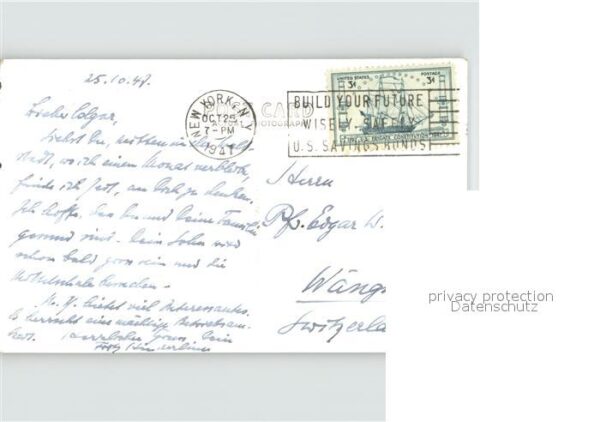 25.10.47.
Lieber Edgar,
Siehst Du, mitten in
stadt, wo ich einen Monat verblieb,
finde ich Zeit, an Dich zu denken.
Ich hoffe, dass Du und Deine Familie
gesund sind. Dein Sohn wird
schon bald gross sein und die
besuchen.
N.Y. bietet viel Interessantes.
Es herrscht eine mächtige
keit. Herzlichen Gruss, Dein
NEW YORK, N.Y.
OCT 25
7-PM
1947
POST CARD
BUILD YOUR FUTURE
WISELY SAFELY
U.S. SAVINGS BONDS
UNITED STATES POSTAGE
3¢ 3¢
U.S. FRIGATE CONSTITUTION
Herrn
Pf. Edgar W.
Wäng
Switzerla
privacy protection
Datenschutz